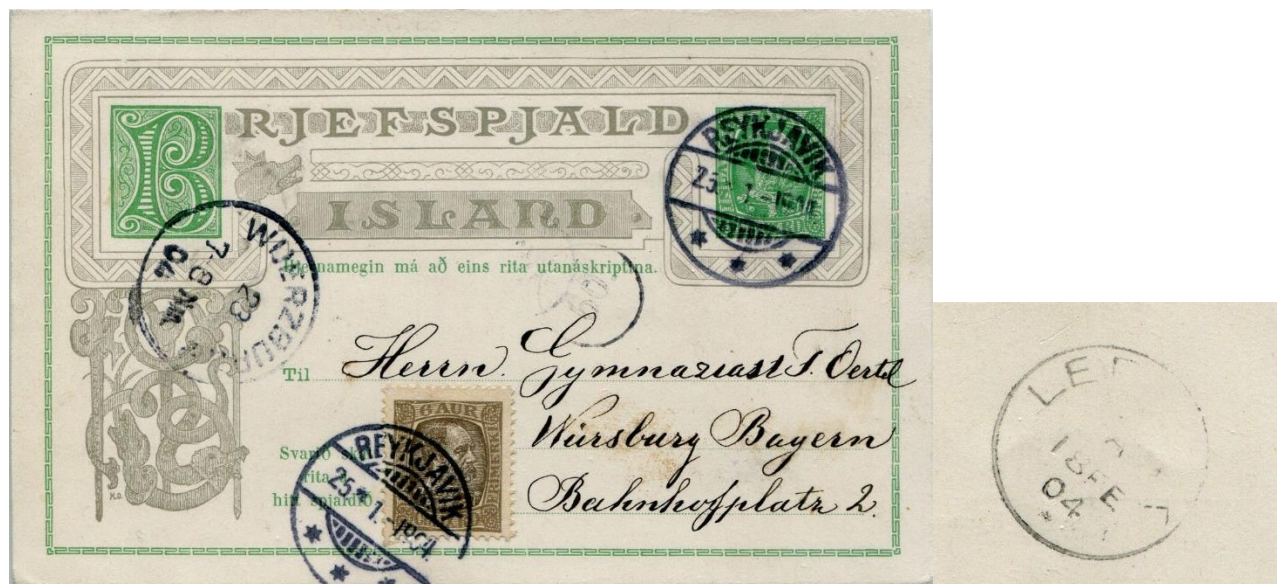 BRJEFSPJALD
ISLAND
REYKJAVIK
25. 1.-1904
WUERZBURG
23
7-8 NM
04
namegin má að eins rita utanáskriptina.
Til Herrn. Gymnasiast F. Oertel
Würsburg Bayern
Bahnhofplatz 2.
6 AUR
FRIMERKI
Svarið
rita
hitt spjaldið
REYKJAVIK
25. 1.-1904
K.O.
LE
18 FE
04